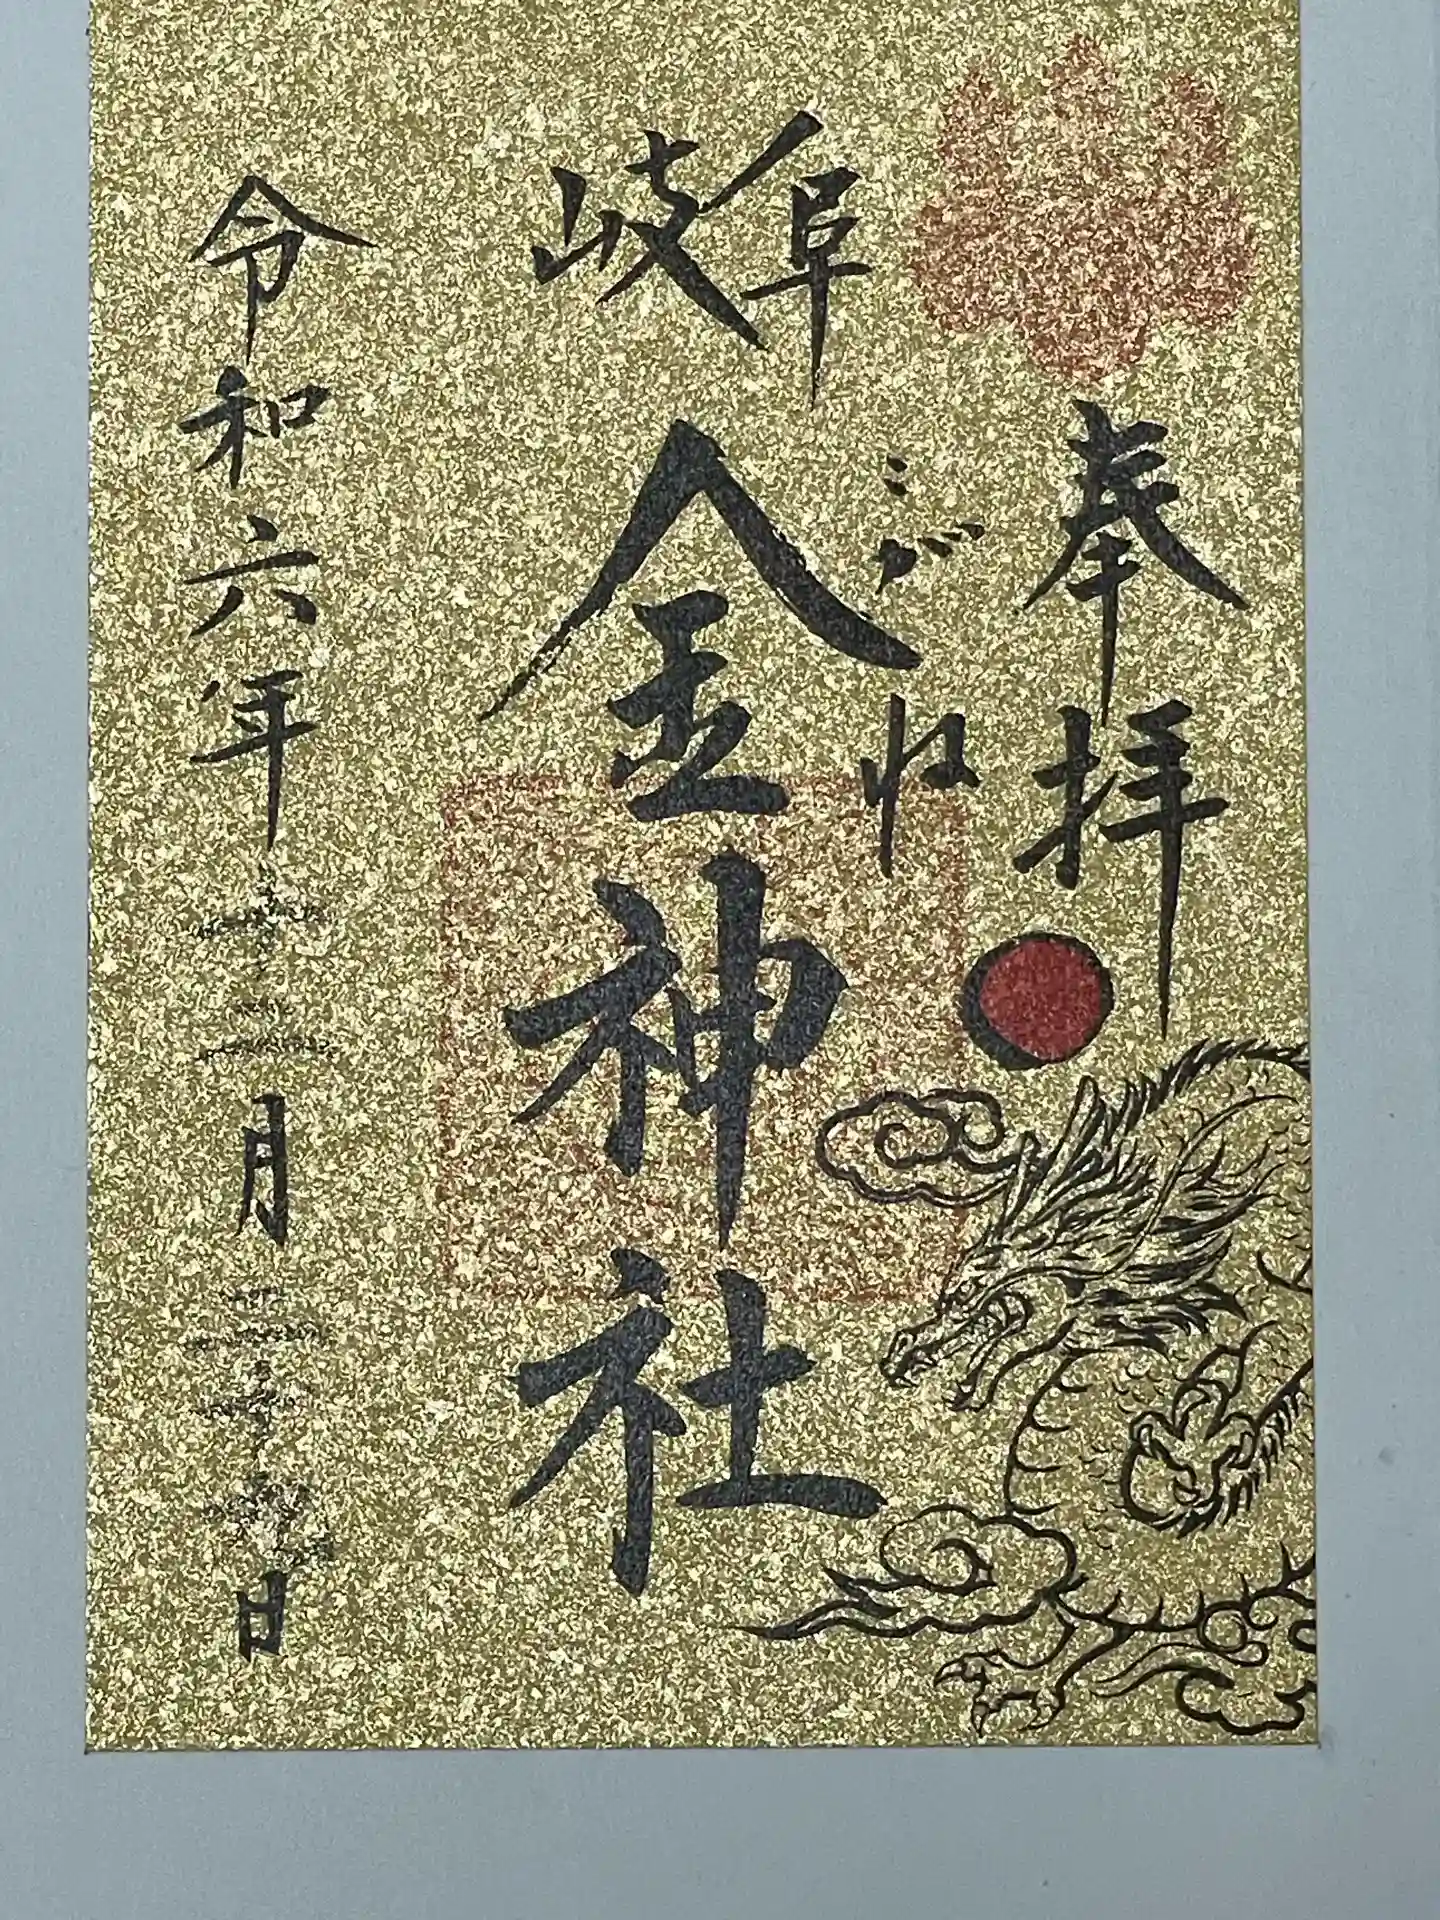 奉拝
岐阜
こがね
金神社
令和六年十二月二十 日